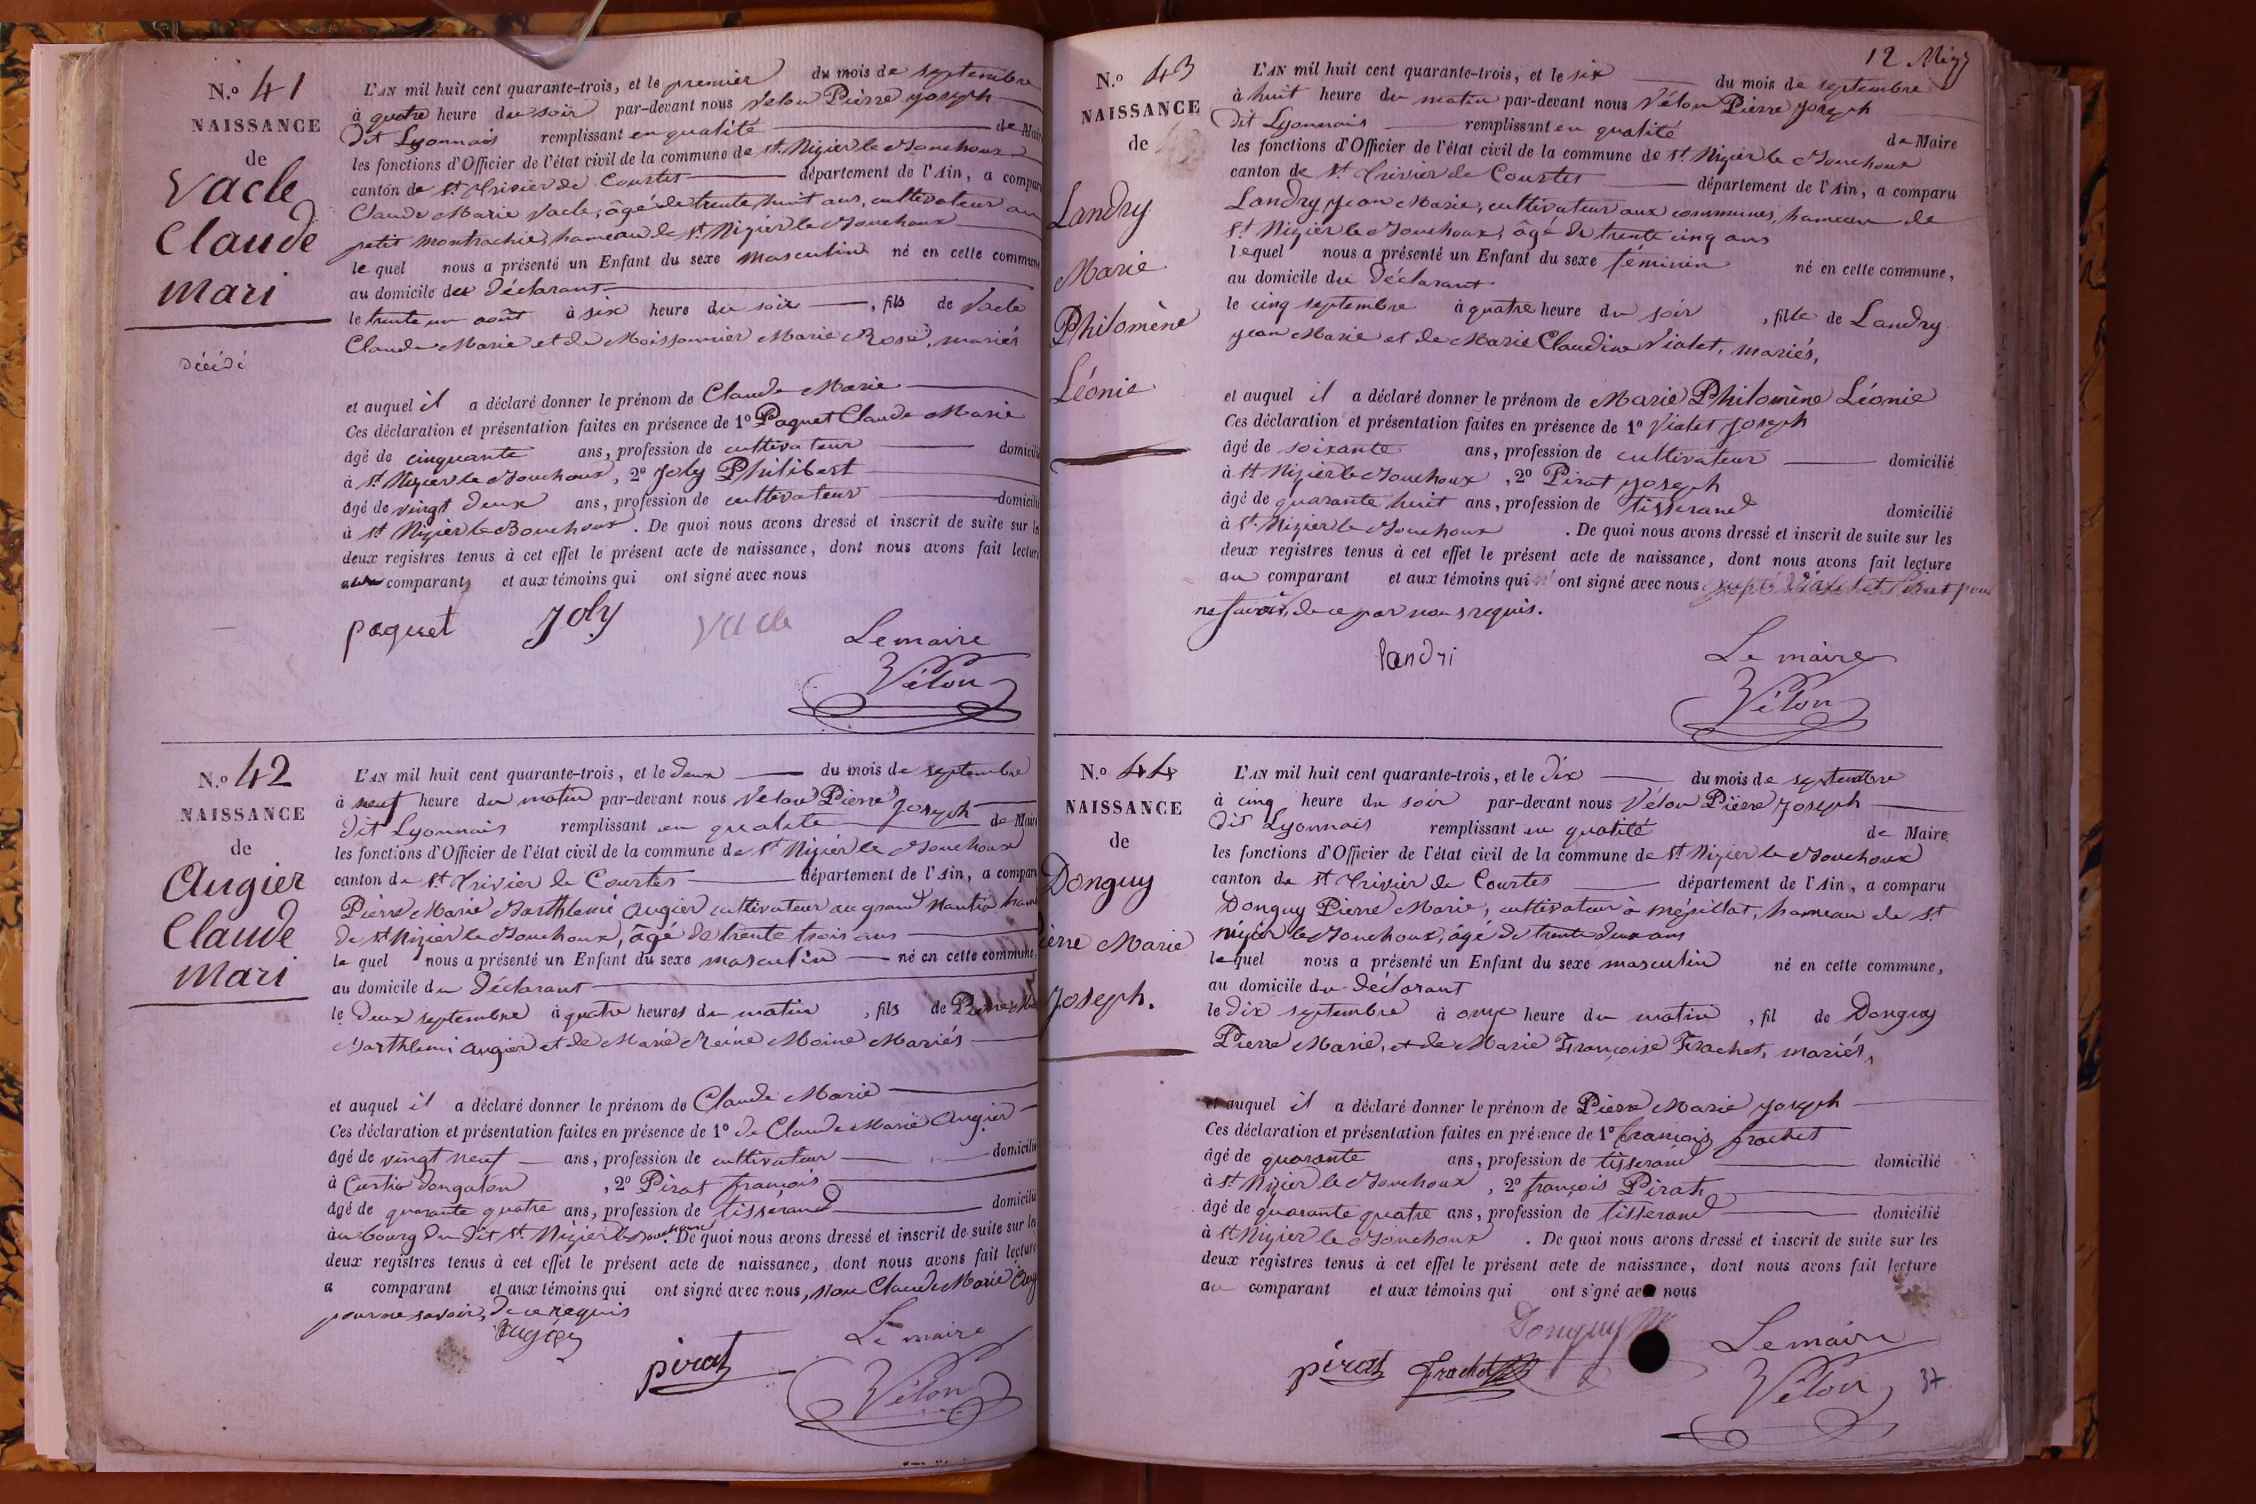 N.º 41
NAISSANCE
de
Vacle
Claude
mari
Décédé
L'AN mil huit cent quarante-trois, et le premier du mois de septembre
à quatre heure du soir par-devant nous Velon Pierre joseph
dit Lyonnais remplissant en qualité de Maire
les fonctions d'Officier de l'état civil de la commune de St. Nizier le Bouchoux
canton de St. Trivier de Courtes département de l'Ain, a compar
Claude Marie Vacle, âgé de trente huit ans, cultivateur au
petit montrachie, hameau de St. Nizier le Bouchoux
le quel nous a présenté un Enfant du sexe masculin né en cette commune
au domicile du déclarant
le trente un août à six heure du soir , fils de Vacle
Claude Marie et de Moissonnier Marie Rose, mariés
et auquel il a déclaré donner le prénom de Claude Marie
Ces déclaration et présentation faites en présence de 1º Paquet Claude Marie
âgé de cinquante ans, profession de cultivateur domicilié
à St Nizier le Bouchoux, 2º Joly Philibert
âgé de vingt deux ans, profession de cultivateur domicilié
à St Nizier le Bouchoux. De quoi nous avons dressé et inscrit de suite sur les
deux registres tenus à cet effet le présent acte de naissance, dont nous avons fait lecture
aux comparants et aux témoins qui ont signé avec nous
paquet Joly Vacle Le maire
Vélon
N.º 42
NAISSANCE
de
Augier
Claude
Mari
L'AN mil huit cent quarante-trois, et le deux du mois de septembre
à neuf heure du matin par-devant nous Velon Pierre Joseph
dit Lyonnais remplissant en qualité de Maire
les fonctions d'Officier de l'état civil de la commune de St Nizier le Bouchoux
canton de St. Trivier de Courtes département de l'Ain, a compar
Pierre Marie Barthlemi Augier cultivateur au grand Nantia ham
de St Nizier le Bouchoux, âgé de trente trois ans
le quel nous a présenté un Enfant du sexe masculin né en cette commune
au domicile du déclarant
le deux septembre à quatre heures du matin , fils de Pierre Ma
Barthlemi Augier et de Marie Reine Moine Mariés
et auquel il a déclaré donner le prénom de Claude Marie
Ces déclaration et présentation faites en présence de 1º de Claude Marie Augier
âgé de vingt neuf ans, profession de cultivateur domicilié
à Curtia dongalon , 2º Pirat françois
âgé de quarante quatre ans, profession de tisserand domicilié
au bourg du dit St Nizier le Bouchoux. De quoi nous avons dressé et inscrit de suite sur les
deux registres tenus à cet effet le présent acte de naissance, dont nous avons fait lecture
a comparant et aux témoins qui ont signé avec nous, non Claude Marie Aug
pour ne savoir, de ce requis
augier pirat Le maire
Vélon
12 Niz
N.º 43
NAISSANCE
de
Landry
Marie
Philomène
Léonie
L'AN mil huit cent quarante-trois, et le six du mois de septembre
à huit heure du matin par-devant nous Vélon Pierre joseph
dit Lyonnais remplissant en qualité de Maire
les fonctions d'Officier de l'état civil de la commune de St Nizier le Bouchoux
canton de St. Trivier de Courtes département de l'Ain, a comparu
Landry jean Marie, cultivateur aux communes, hameau de
St. Nizier le Bouchoux, âgé de trente cinq ans
lequel nous a présenté un Enfant du sexe féminin né en cette commune,
au domicile du déclarant
le cinq septembre à quatre heure du soir , fille de Landry
jean Marie et de Marie Claudine Violet, mariés,
et auquel il a déclaré donner le prénom de Marie Philomène Léonie
Ces déclaration et présentation faites en présence de 1º Violet Joseph
âgé de soixante ans, profession de cultivateur domicilié
à St Nizier le Bouchoux , 2º Pirat joseph
âgé de quarante huit ans, profession de tisserand domicilié
à St. Nizier le Bouchoux . De quoi nous avons dressé et inscrit de suite sur les
deux registres tenus à cet effet le présent acte de naissance, dont nous avons fait lecture
au comparant et aux témoins qui n'ont signé avec nous
ne savoir, de ce par nous requis.
landri Le maire
Vélon
N.º 44
NAISSANCE
de
Donguy
Pierre Marie
Joseph.
L'AN mil huit cent quarante-trois, et le dix du mois de septembre
à cinq heure du soir par-devant nous Vélon Pierre joseph
dit Lyonnais remplissant en qualité de Maire
les fonctions d'Officier de l'état civil de la commune de St. Nizier le Bouchoux
canton de St Trivier de Courtes département de l'Ain, a comparu
Donguy Pierre Marie, cultivateur à mépillat, hameau de St
nizier le Bouchoux, âgé de trente deux ans
lequel nous a présenté un Enfant du sexe masculin né en cette commune,
au domicile du déclarant
le dix septembre à onze heure du matin , fil de Donguy
Pierre Marie, et de Marie Françoise Frachet, mariés,
et auquel il a déclaré donner le prénom de Pierre Marie Joseph
Ces déclaration et présentation faites en présence de 1º françois frachet
âgé de quarante ans, profession de tisserand domicilié
à St Nizier le Bouchoux , 2º françois Pirat
âgé de quarante quatre ans, profession de tisserand domicilié
à St Nizier le Bouchoux . De quoi nous avons dressé et inscrit de suite sur les
deux registres tenus à cet effet le présent acte de naissance, dont nous avons fait lecture
au comparant et aux témoins qui ont signé avec nous
Donguy
pirat frachet Le maire
Vélon 37